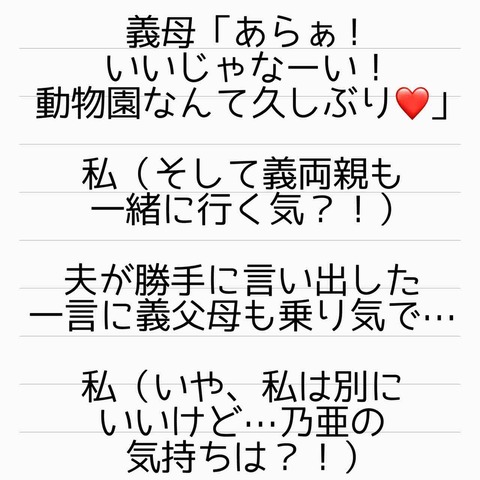 義母「あらぁ！
いいじゃなーい！
動物園なんて久しぶり❤️」
私（そして義両親も
一緒に行く気？！）
夫が勝手に言い出した
一言に義父母も乗り気で…
私（いや、私は別に
いいけど…乃亜の
気持ちは？！）